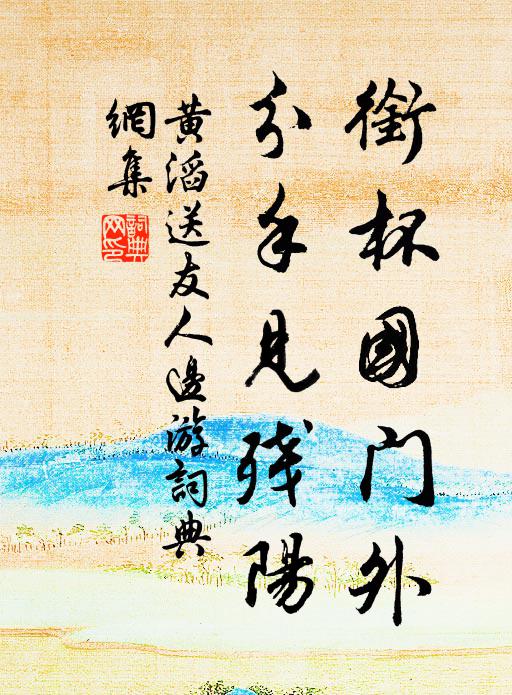 銜杯國門外
分手見殘陽
黃滔送友人邊游詞典
網集
詞典
网印